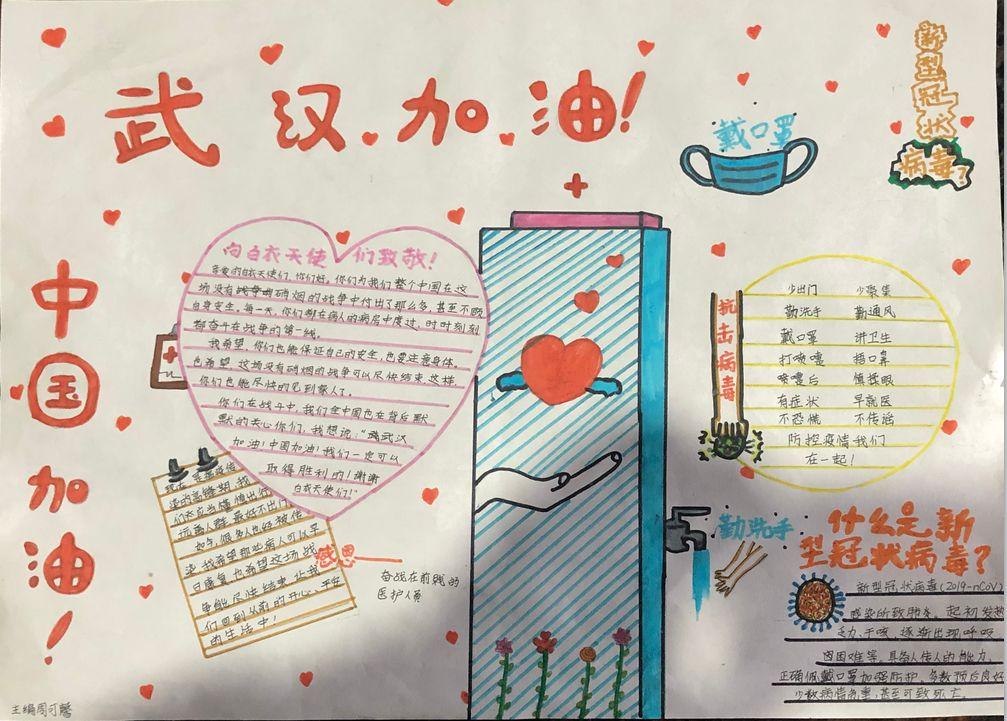 武汉加油!
中国加油!
新型冠状
病毒?
戴口罩
向白衣天使们致敬!
亲爱的白衣天使们,你们好,你们为我们整个中国在这
场没有硝烟的战争中付出了那么多,甚至不顾
自身安全,每一天,你们都在病人的病房中度过,时时刻刻
都奋斗在战争的第一线。
我希望,你们也能保证自己的安全,也要注意身体。
也希望,这场没有硝烟的战争可以尽快结束,这样,
你们也能尽快的见到家人了。
你们在战斗中,我们全中国也在背后默
默的关心你们,我想说:“武汉
加油!中国加油!我们一定可以
取得胜利的!谢谢
白衣天使们!”
抗击病毒
少出门 少聚集
勤洗手 勤通风
戴口罩 讲卫生
打喷嚏 捂口鼻
喷嚏后 慎揉眼
有症状 早就医
不恐慌 不传谣
防控疫情我们
在一起!
染的高峰期,我
们大应当谨慎出行
远离人群,最好不出门
如今,很多人也经被传
染,我希望那些病人可以早
日康复,也希望这场战
争能尽快结束,让我
们回到从前的开心、平安
的生活中!
感恩
奋战在前线的
医护人员
勤洗手
什么是新
型冠状病毒?
新型冠状病毒(2019-nCoV)
感染所致肺炎,起初发热
乏力,干咳,逐渐出现呼吸
困难等,具备人传人的能力,
正确佩戴口罩加强防护,多数预后良好
少数病情危重,甚至可致死亡.
主编周可馨